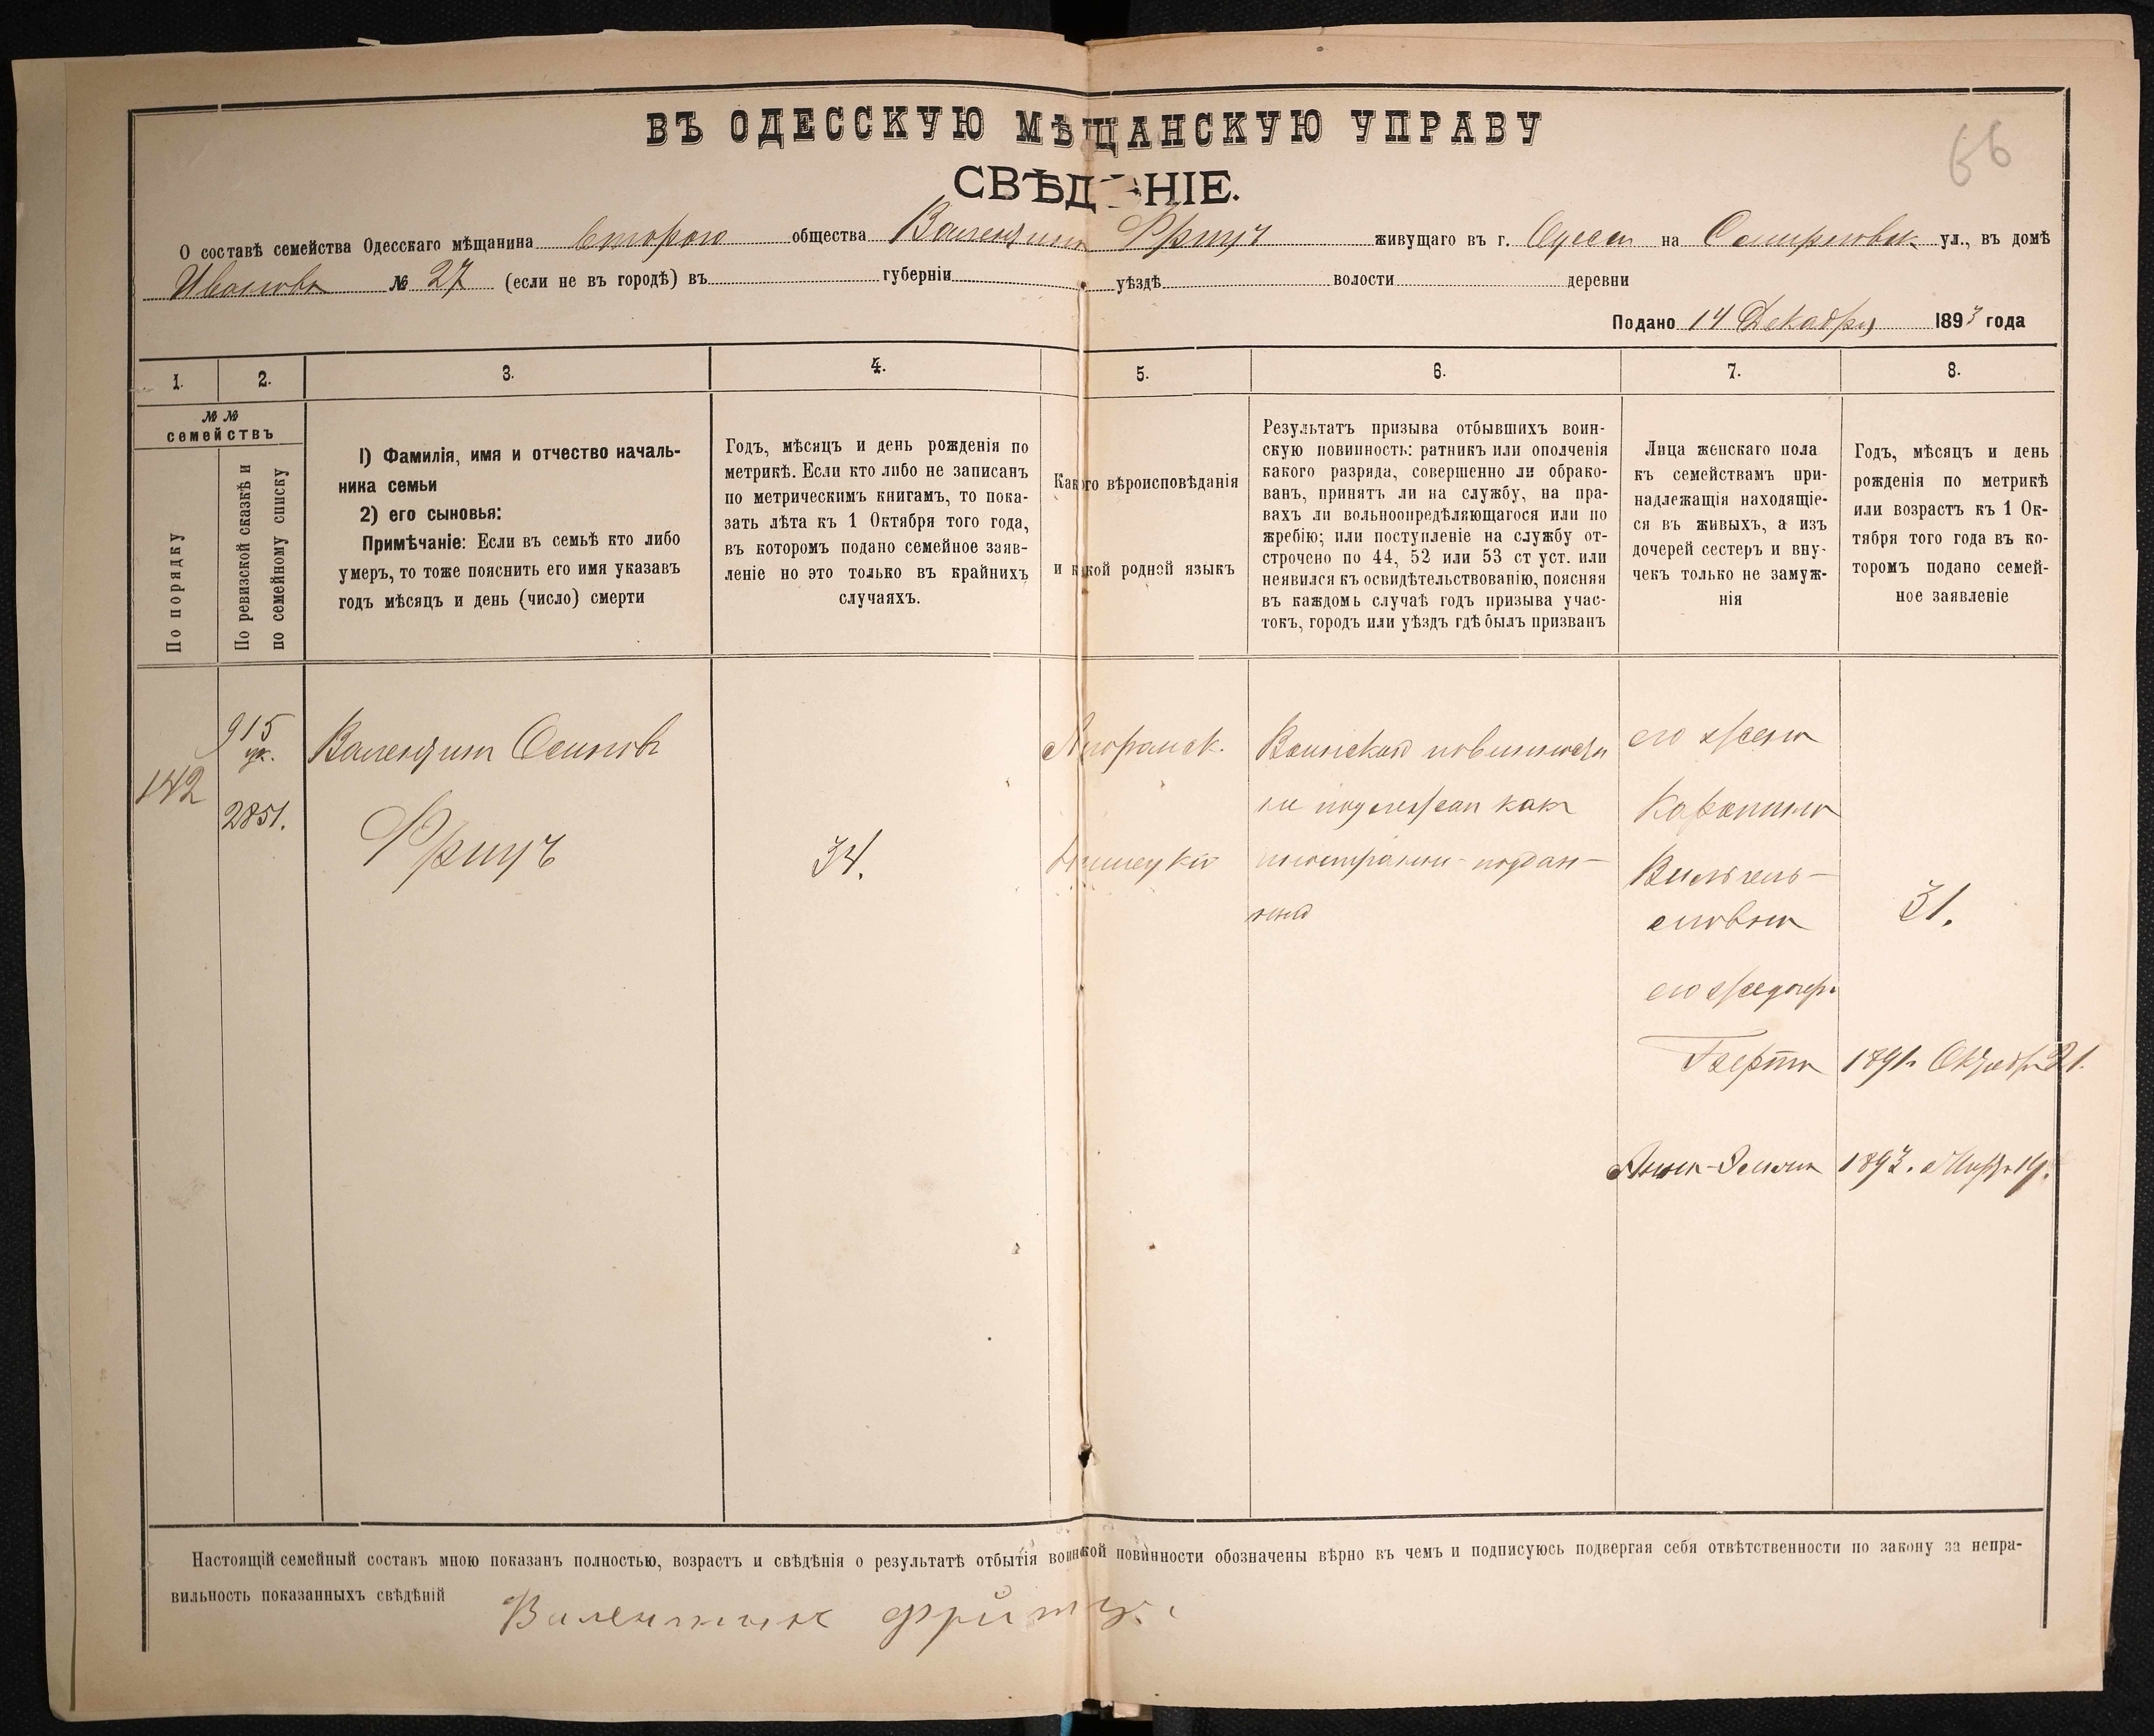 66
ВЪ ОДЕССКУЮ МѢЩАНСКУЮ УПРАВУ
СВѢДѢНІЕ.
О составѣ семейства Одесскаго мѣщанина второго общества Валентина Фрицъ живущаго въ г. Одессѣ на ул., въ домѣ
Иванова № 27 (если не въ городѣ) въ губерніи уѣздѣ волости деревни
Подано 14 Декабря 1893 года
1. 2. 3. 4. 5. 6. 7. 8.
№ №
семействъ
По порядку
По ревизской сказкѣ и
по семейному списку
I) Фамилія, имя и отчество началь-
ника семьи
2) его сыновья:
Примѣчаніе: Если въ семьѣ кто либо
умеръ, то тоже пояснить его имя указавъ
годъ мѣсяцъ и день (число) смерти
Годъ, мѣсяцъ и день рожденія по
метрикѣ. Если кто либо не записанъ
по метрическимъ книгамъ, то пока-
зать лѣта къ 1 Октября того года,
въ которомъ подано семейное заяв-
леніе но это только въ крайнихъ
случаяхъ.
Какого вѣроисповѣданія
и какой родной языкъ
Результатъ призыва отбывшихъ воин-
скую повинность: ратникъ или ополченія
какого разряда, совершенно ли обрако-
ванъ, принятъ ли на службу, на пра-
вахъ ли вольноопредѣляющагося или по
жребію; или поступленіе на службу от-
строчено по 44, 52 или 53 ст уст. или
неявился къ освидѣтельствованію, поясняя
въ каждомъ случаѣ годъ призыва учас-
токъ, городъ или уѣздъ гдѣ былъ призванъ
Лица женскаго пола
къ семействамъ при-
надлежащія находящіе-
ся въ живыхъ, а изъ
дочерей сестеръ и вну-
чекъ только не замуж-
нія
Годъ, мѣсяцъ и день
рожденія по метрикѣ
или возрастъ къ 1 Ок-
тября того года въ ко-
торомъ подано семей-
ное заявленіе
142
915
ук.
2851.
Валентин Осиповъ
Фрицъ
34.
Лютранск.
Нѣмецкій
Воинской повинности
не подлежал как
иностранно-поддан-
ный
его жена
Каролина
Вильгель-
мовна
31.
его же дочер.
Берта 1891г. Октября 21.
Анна-Эмилия 1893. Марта 14.
Настоящій семейный составъ мною показанъ полностью, возрастъ и свѣдѣнія о результатѣ отбытія воинской повинности обозначены вѣрно въ чемъ и подписуюсь подвергая себя отвѣтственности по закону за непра-
вильность показанныхъ свѣдѣній
Валентин Фритц